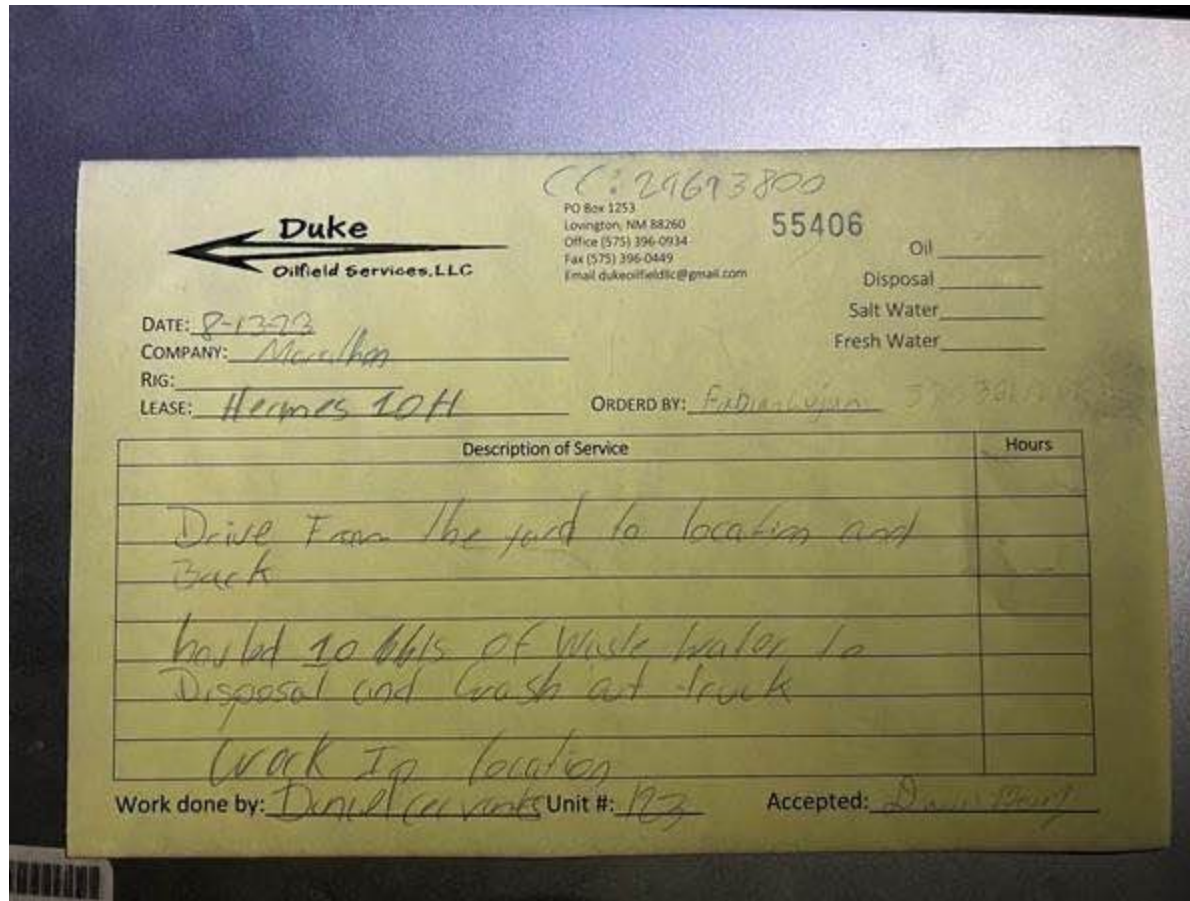 CC: 29693800
Duke
Oilfield Services, LLC
PO Box 1253
Lovington, NM 88260
Office (575) 396-0934
Fax (575) 396-0449
Email dukeoilfieldllc@gmail.com
55406
Oil
Disposal
Salt Water
Fresh Water
DATE: 8-13-23
COMPANY: Marathon
RIG:
LEASE: Hermes 10H
ORDERD BY: Fabian Lujan
Description of Service
Hours
Drive From the yard to location and
Back
hauled 10 bbls of Waste Water to
Disposal and Wash out truck
Work In location
Work done by: Daniel Cervantes Unit #: 123 Accepted: